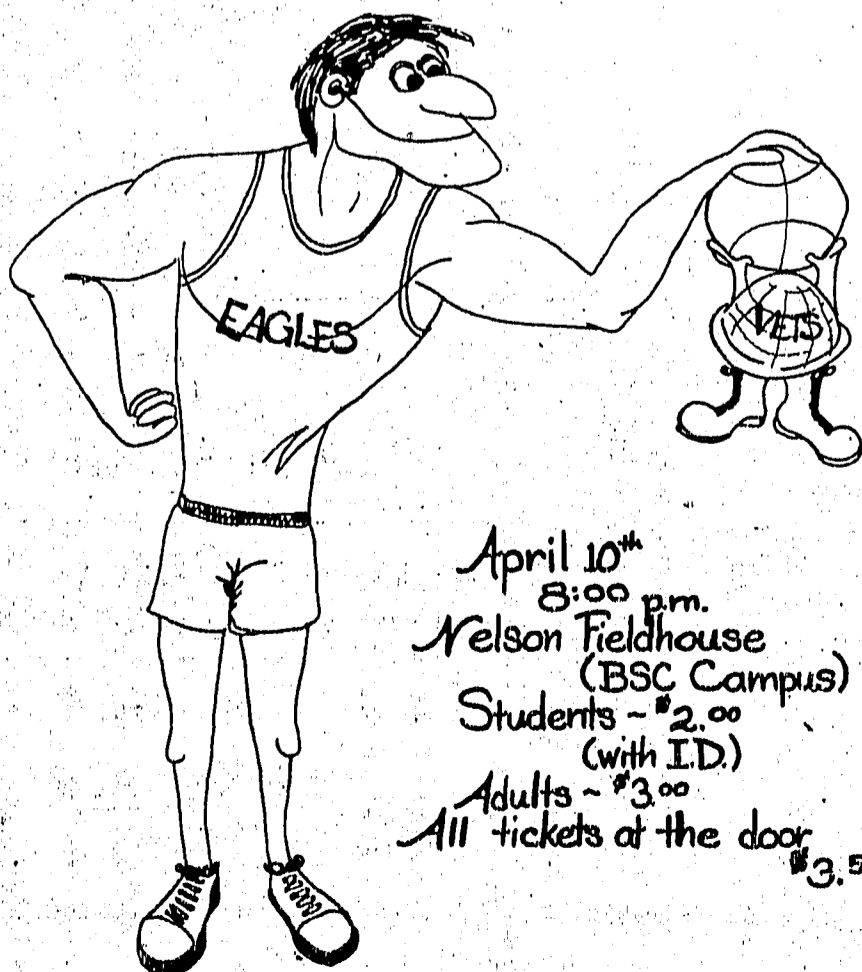 EAGLES
VETS
April 10th
8:00 p.m.
Nelson Fieldhouse
(BSC Campus)
Students ~ $2.00
(with I.D.)
Adults ~ $3.00
All tickets at the door
$3.5